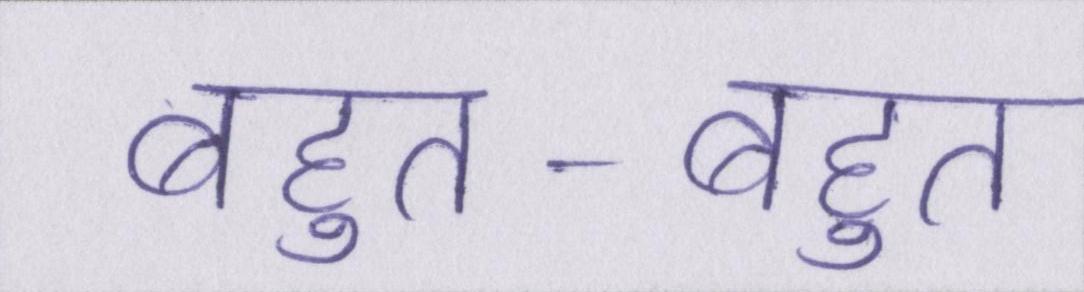 बहुत-बहुत